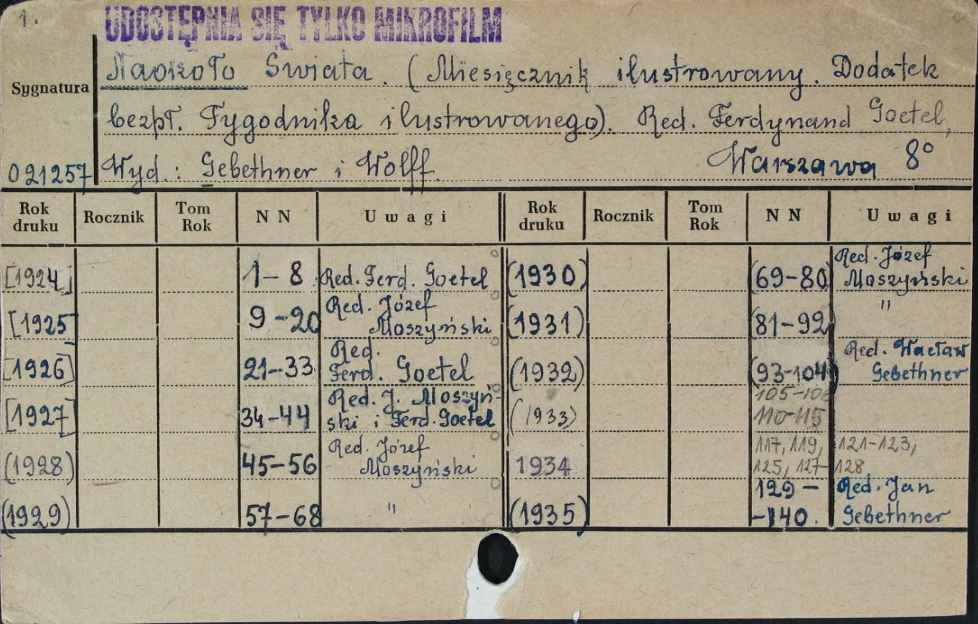 1.
UDOSTĘPNIA SIĘ TYLKO MIKROFILM
Sygnatura
Naokoło Świata. (Miesięcznik ilustrowany. Dodatek
bezpł. Tygodnika ilustrowanego). Red. Ferdynand Goetel,
021257 Wyd.: Gebethner i Wolff. Warszawa 8°
Rok druku Rocznik Tom Rok NN Uwagi Rok druku Rocznik Tom Rok NN Uwagi
[1924] 1-8 Red. Ferd. Goetel (1930) (69-80) Red. Józef Moszyński
[1925] 9-20 Red. Józef Moszyński (1931) (81-92) "
[1926] 21-33 Red. Ferd. Goetel (1932) (93-104) Red. Wacław Gebethner
[1927] 34-44 Red. J. Moszyński i Ferd. Goetel (1933) 110-115
(1928) 45-56 Red. Józef Moszyński 1934 117, 119, 121-123,
125, 127-128
(1929) 57-68 " (1935) 129-
-140. Red. Jan Gebethner